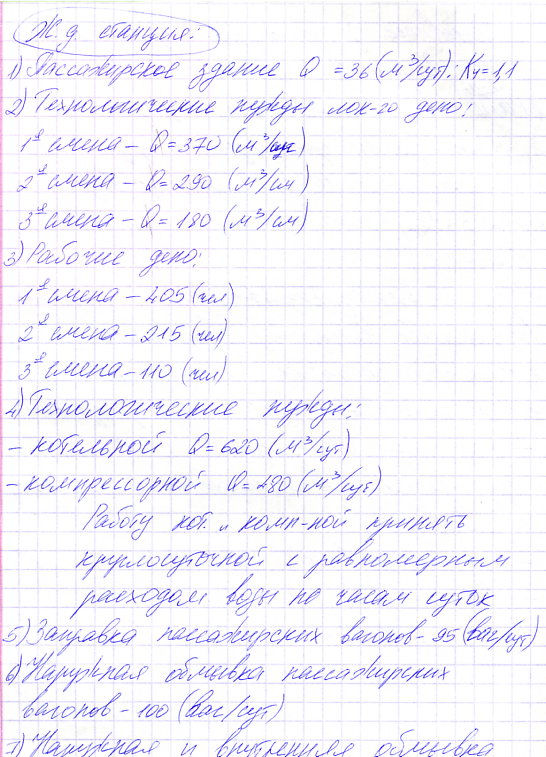 Ж.д. станция:
1) Пассажирское здание Q = 36 (м³/сут): Kч = 1,1
2) Технологические нужды лок-го депо:
1ᵃя смена – Q = 370 (м³/см)
2ᵃя смена – Q = 290 (м³/см)
3ᵃя смена – Q = 180 (м³/см)
3) Рабочие депо:
1ᵃя смена – 405 (чел)
2ᵃя смена – 215 (чел)
3ᵃя смена – 110 (чел)
4) Технологические нужды:
– котельной Q = 620 (м³/сут)
– компрессорной Q = 480 (м³/сут)
Работу кот. и комп-ной принять
круглосуточной с равномерным
расходом воды по часам суток
5) Заправка пассажирских вагонов – 95 (ваг/сут)
6) Наружная обмывка пассажирских
вагонов – 100 (ваг/сут)
7) Наружная и внутренняя обмывка